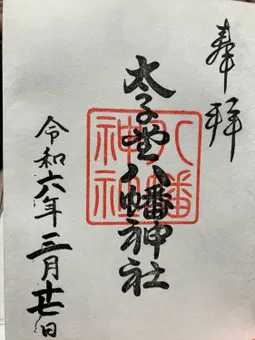 奉拝
太子堂八幡神社
八幡
神社
令和六年三月廿日